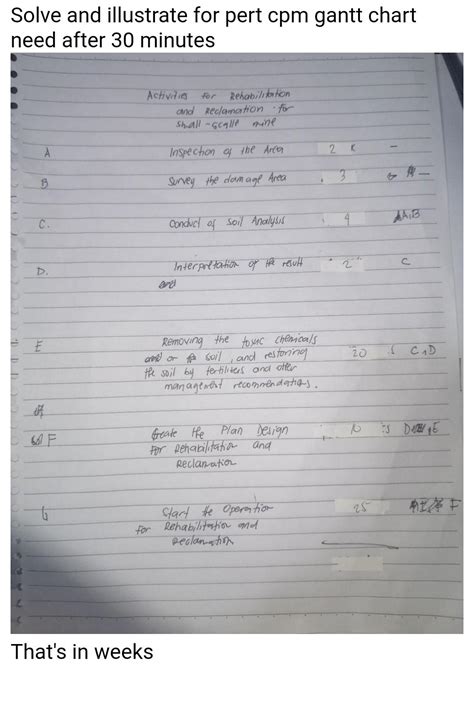 Solve and illustrate for pert cpm gantt chart
need after 30 minutes
Activities for Rehabilitation
and Reclamation for
small-scalle mine
A Inspection of the Area 2 -
B Survey the damage Area 3 -
C. Conduct of Soil Analysis 4 A,B
D. Interpretation of the result 2 C
and
E Removing the toxic chemicals
or soil, and restoring 20 C,D
the soil by fertilizers and other
management recommendations.
F Create the Plan Design 10 D,E
for Rehabilitation and
Reclamation
G Start the Operation 25 F
for Rehabilitation and
Reclamation
That's in weeks